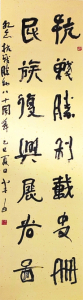 抗戰勝利垂史冊
民族復興展宏圖
紀念抗戰勝利八十周年 乙巳夏日